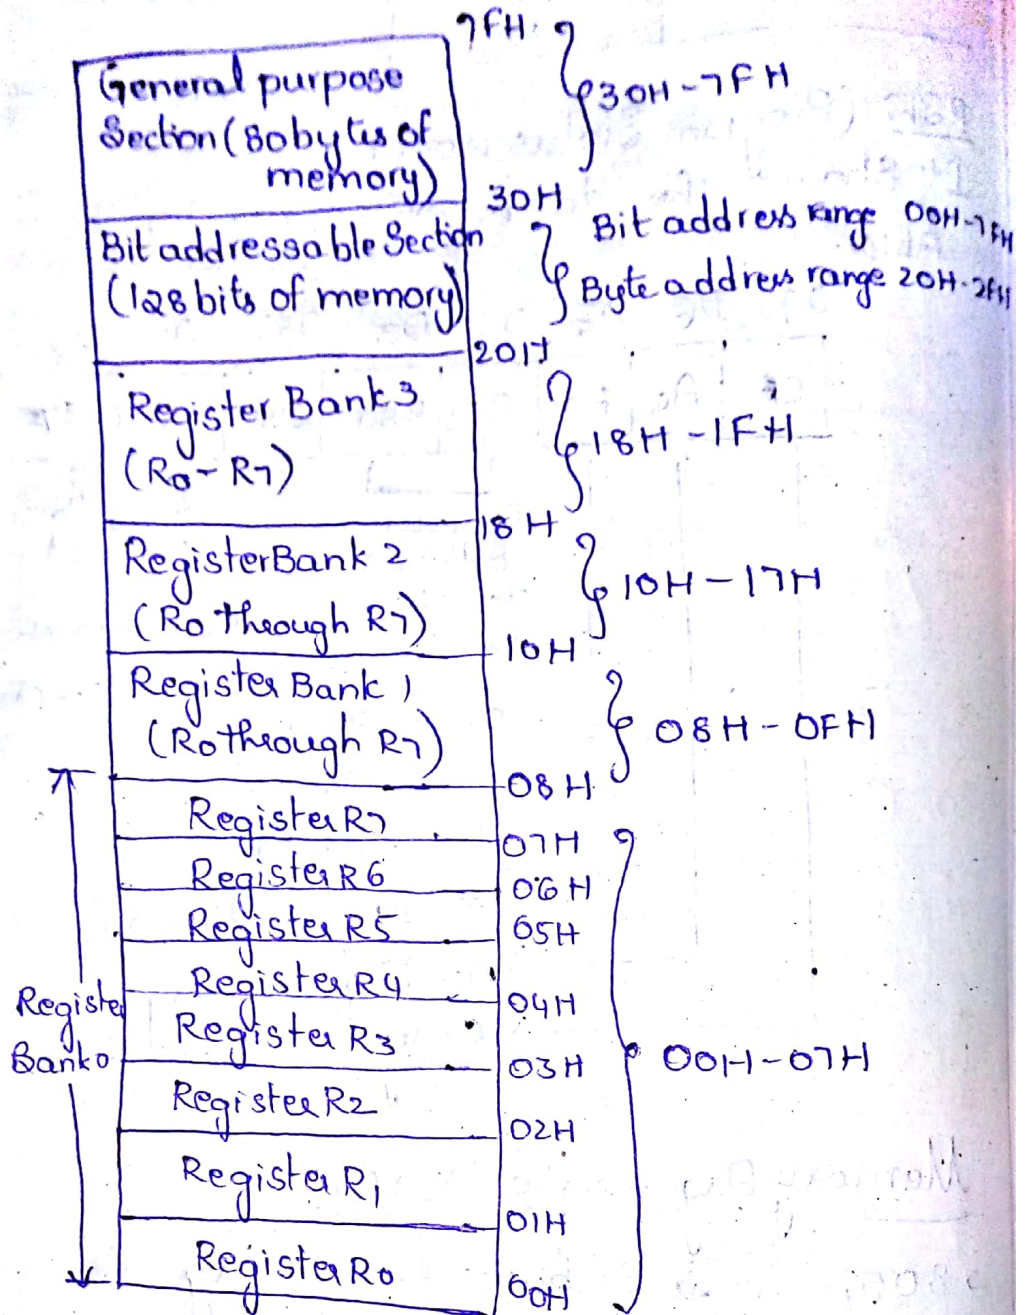 7FH
General purpose
Section (80bytes of
memory)
30H-7FH
30H
Bit addressable Section
(128 bits of memory)
Bit address range 00H-7FH
Byte address range 20H-2FH
20H
Register Bank 3
(R0-R7)
18H-1FH
18H
Register Bank 2
(R0 through R7)
10H-17H
10H
Register Bank 1
(R0 through R7)
08H-0FH
08H
Register R7
07H
Register R6
06H
Register R5
05H
Register R4
04H
Register R3
03H
Register
Bank0
00H-07H
Register R2
02H
Register R1
01H
Register R0
00H